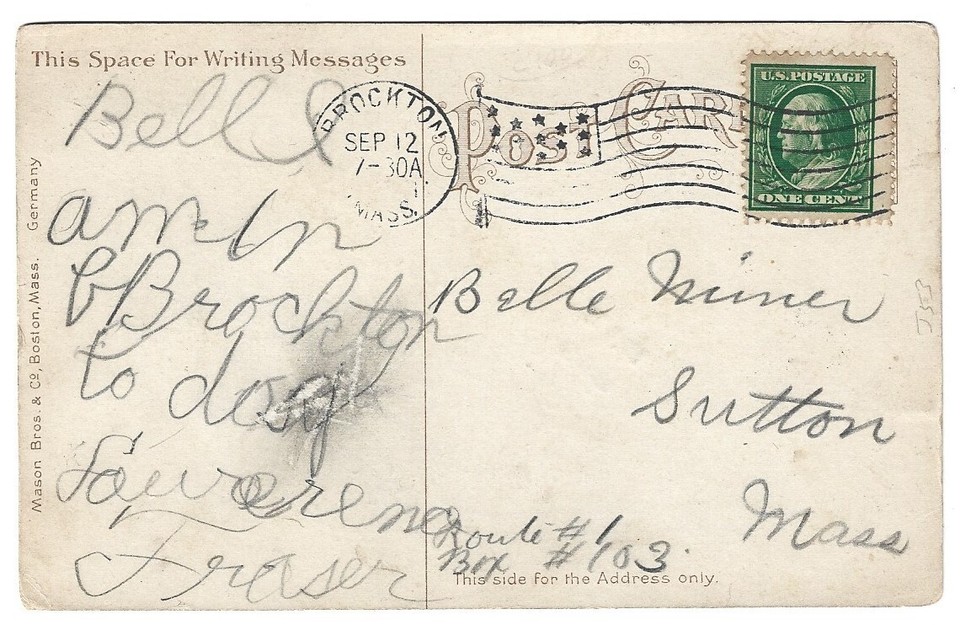 This Space For Writing Messages
Bell
am in
Brockton
to day
Fraser
Mason Bros. & Co, Boston, Mass. Germany
BROCKTON
SEP 12
7-30A
MASS.
POST CARD
U.S. POSTAGE
ONE CENT
Belle Miner
Sutton
Mass
Route #1
Box #103.
This side for the Address only.